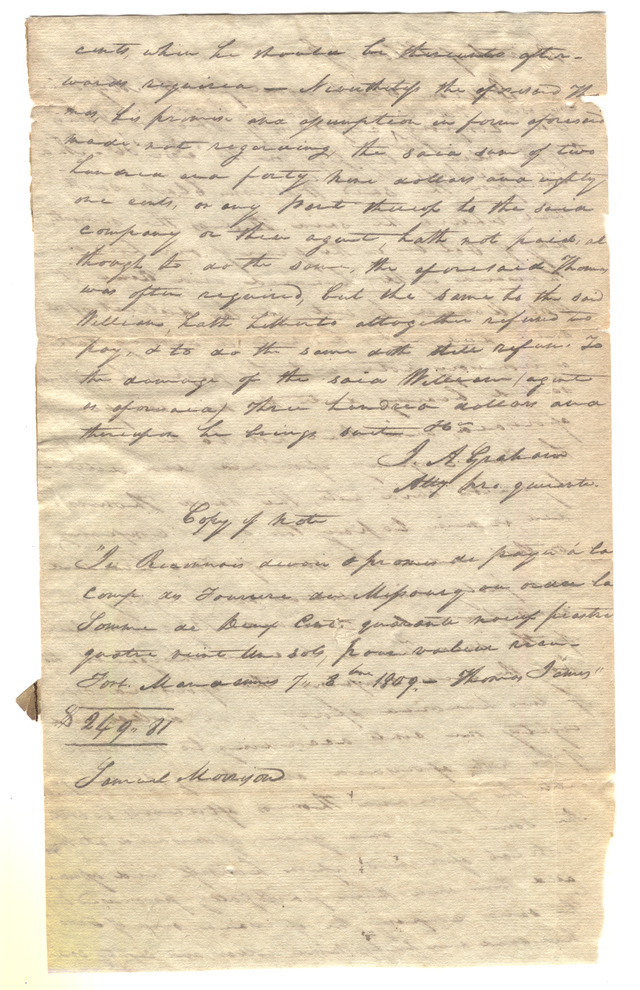 cents, when he should be thereunto after-
wards required — Nevertheless the aforesaid Tho
mas, his promise and assumption in form aforesaid
made not regarding, the said sum of two
hundred and forty nine dollars and eighty
one cents, or any part thereof to the said
company or their agent, hath not paid, al
though to do the same, the aforesaid Thomas
was often required, but the same to the said
William, hath hitherto altogether refused to
pay, & to do the same doth still refuse. To
the damage of the said William (agent
as aforesaid) Three hundred dollars and
thereupon he brings suit &c
J. A. Graham
Atty pro quer
Copy of Note
"Je Reconnois devoir & promes de payer à la
comp des Fourure du Missoury ou ordre la
Somme de Deux Cent quarante neuf piastre
quatre vint Un sols, pour valeur recu
Fort Mandannes 7" 8bre 1809 — Thomas James"
$ 249" 81
Samuel Morrison